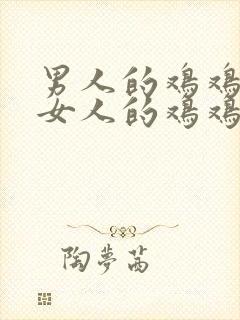 男人的鸡鸡
女人的鸡鸡
陶夢茜